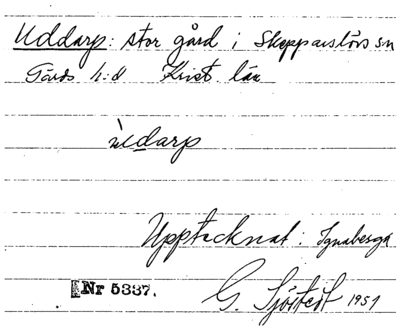 Uddarp: stor gård i Skepparslövs sn
Gärds h:d Krist. län
ùdarp
Upptecknat: Ignaberga
Nr 5337.
G. Sjöstedt 1951